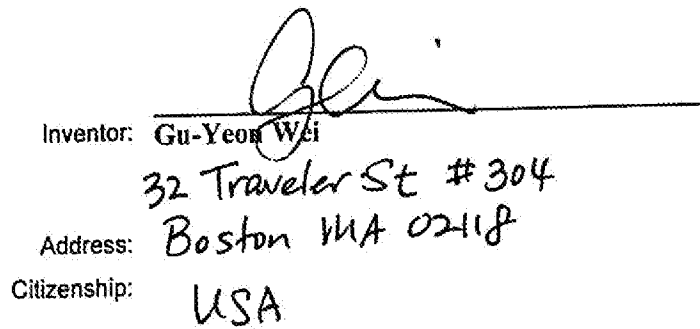 Inventor: Gu-Yeon Wei
32 Traveler St #304
Address: Boston MA 02118
Citizenship: USA